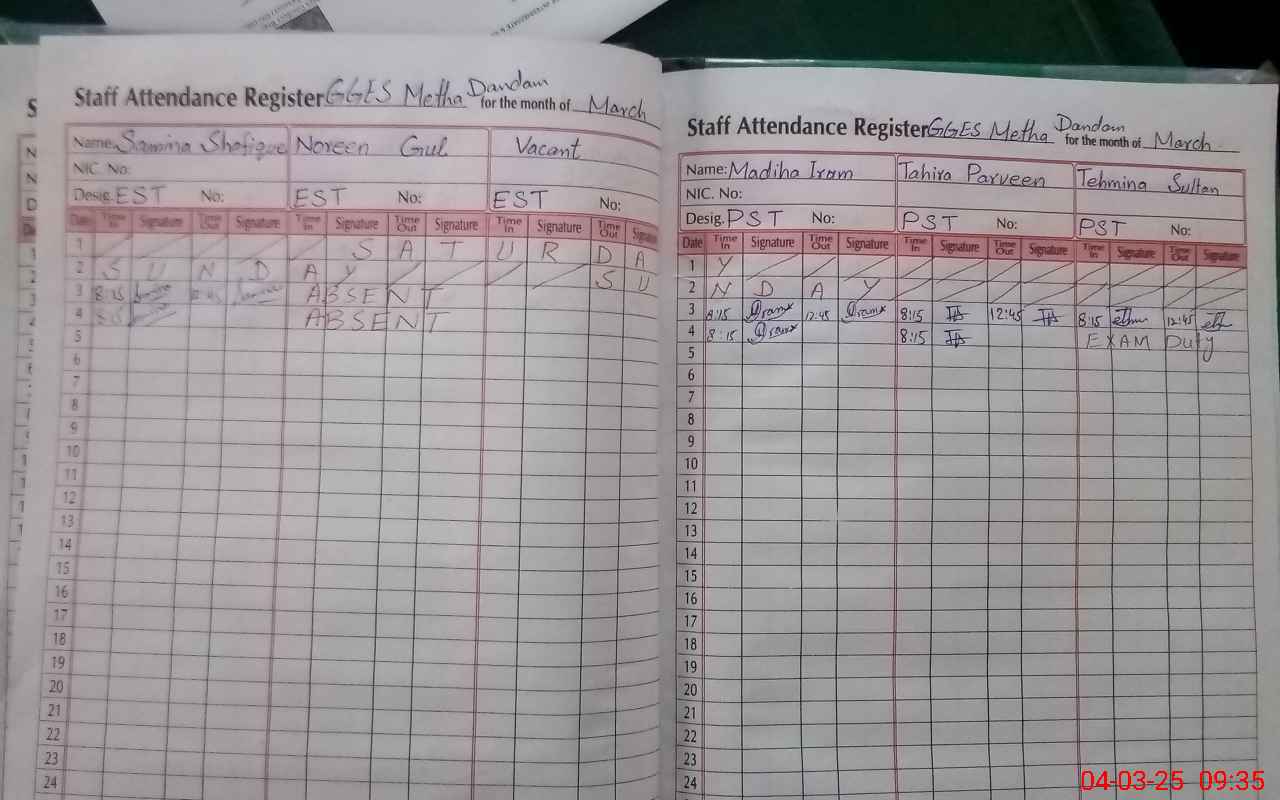 Staff Attendance Register GGES Metha Dandam for the month of March
Name: Samina Shafique Noreen Gul Vacant
NIC. No:
Desig. EST No: EST No: EST No:
Date Time In Signature Time Out Signature Time In Signature Time Out Signature Time In Signature Time Out Signature
1 S A T U R D A
2 S U N D A Y S U
3 8:15 12:45 ABSENT
4 8:15 ABSENT
5
6
7
8
9
10
11
12
13
14
15
16
17
18
19
20
21
22
23
24
Staff Attendance Register GGES Metha Dandam for the month of March
Name: Madiha Iram Tahira Parveen Tehmina Sultan
NIC. No:
Desig. PST No: PST No: PST No:
Date Time In Signature Time Out Signature Time In Signature Time Out Signature Time In Signature Time Out Signature
1 Y
2 N D A Y
3 8:15 Iram 12:45 Iram 8:15 12:45 8:15 12:45
4 8:15 Iram 8:15 EXAM Duty
5
6
7
8
9
10
11
12
13
14
15
16
17
18
19
20
21
22
23
24
04-03-25 09:35